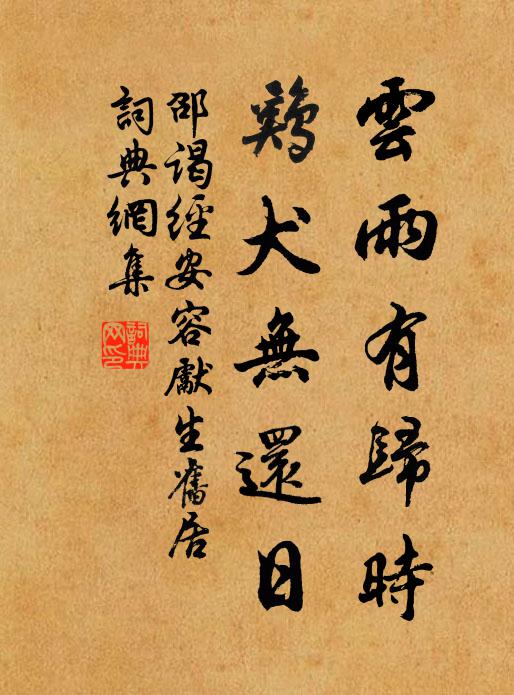 雲雨有歸時
鷄犬無還日
邵謁經安容獻生舊居
詞典網集
詞典網印